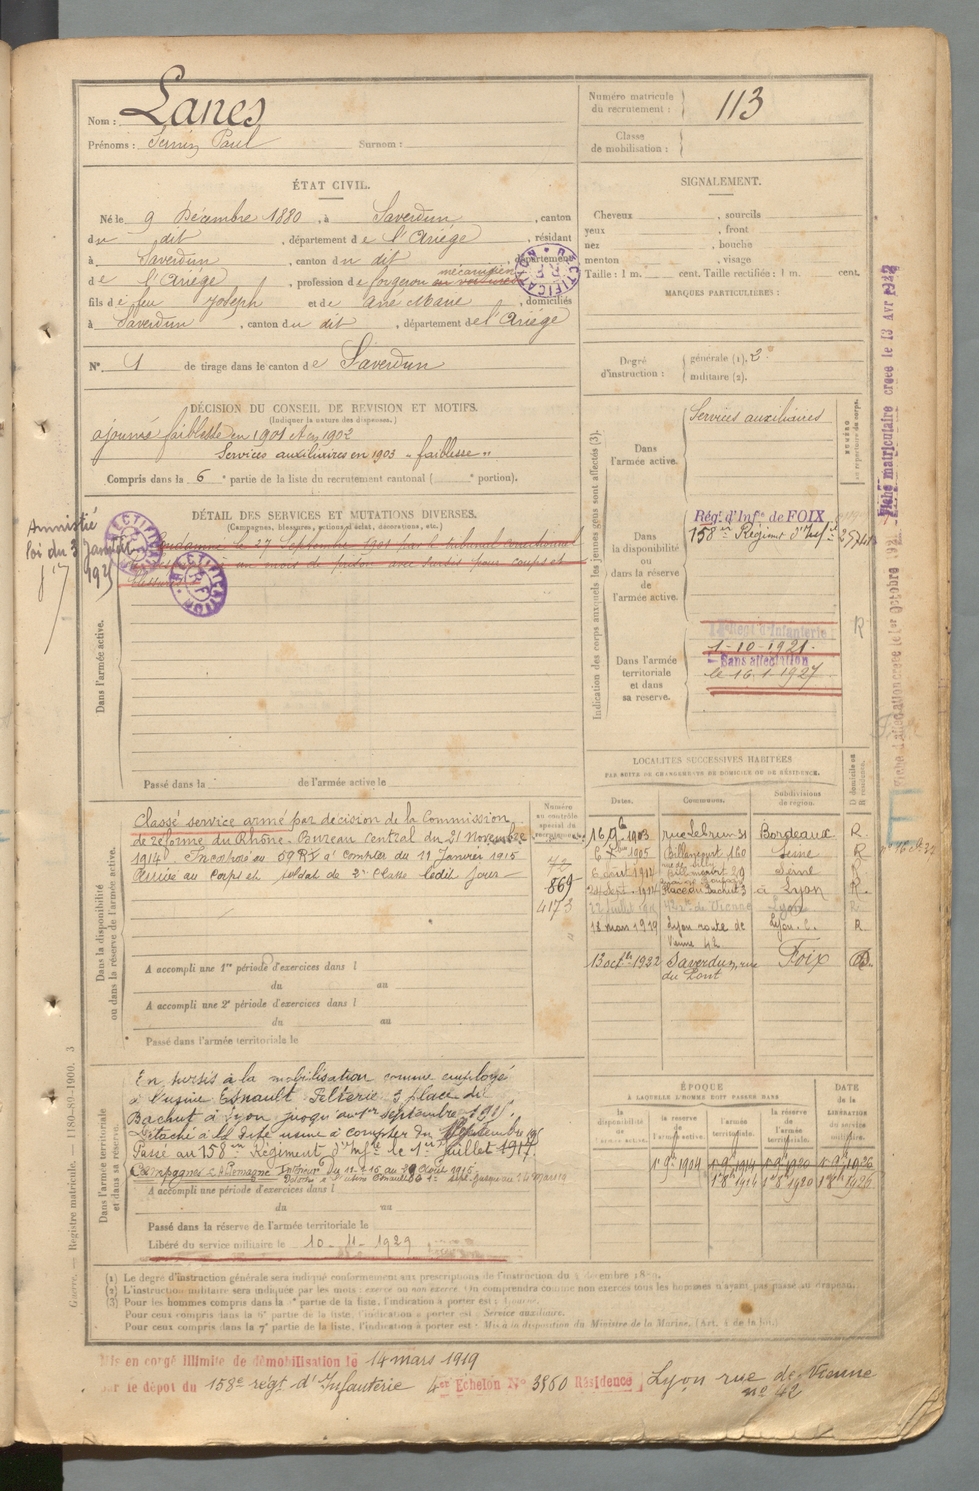 Nom : Lanes
Prénoms : Sernin Paul Surnom :
Numéro matricule du recrutement : 113
Classe de mobilisation :
ÉTAT CIVIL.
Né le 9 Décembre 1880, à Saverdun, canton
du dit, département de l'Ariége, résidant
à Saverdun, canton du dit, département
de l'Ariége, profession de forgeron mécanicien
fils de feu Joseph et de Anè Marie, domiciliés
à Saverdun, canton du dit, département de l'Ariége
N° 1 de tirage dans le canton de Saverdun
SIGNALEMENT.
Cheveux , sourcils
yeux , front
nez , bouche
menton , visage
Taille : 1 m. cent. Taille rectifiée : 1 m. cent.
MARQUES PARTICULIÈRES :
Degré d'instruction : générale (1). 2
militaire (2).
DÉCISION DU CONSEIL DE REVISION ET MOTIFS.
(Indiquer la nature des dispenses.)
ajourné faiblesse en 1901 et en 1902
Services auxiliaires en 1903 "faiblesse"
Compris dans la 6e partie de la liste du recrutement cantonal ( e portion).
DÉTAIL DES SERVICES ET MUTATIONS DIVERSES.
(Campagnes, blessures, actions d'éclat, décorations, etc.)
Amnistié
loi du 3 Janvier
1925
RECTIFICATION
Condamné le 27 Septembre 1901 par le tribunal correctionnel
un mois de prison avec sursis pour coups et
blessures
Dans l'armée active.
Passé dans la de l'armée active le
Indication des corps auxquels les jeunes gens sont affectés (3).
NUMÉRO au répertoire du corps.
Dans l'armée active. Services auxiliaires
Dans la disponibilité ou dans la réserve de l'armée active.
Rég. d'Infie de FOIX
158e Régiment d'Infie
Dans l'armée territoriale et dans sa réserve.
Regt d'Infanterie
1-10-1921.
Sans affectation
le 16-1-1927
R
Fiche matriculaire créée le 13 Avr 1922
Fiche d'affectation créée le 1er Octobre 192
Dans la disponibilité ou dans la réserve de l'armée active.
Classé service armé par décision de la Commission
de réforme du Rhône. Bureau Central du 21 Novembre
1914. Incorporé au 59 RI à compter du 11 Janvier 1915
Arrivé au Corps et soldat de 2e Classe ledit jour
Numéro au contrôle spécial du recrutement.
869
4173
A accompli une 1re période d'exercices dans l
du au
A accompli une 2e période d'exercices dans l
du au
Passé dans l'armée territoriale le
LOCALITÉS SUCCESSIVES HABITÉES
PAR SUITE DE CHANGEMENTS DE DOMICILE OU DE RÉSIDENCE.
Dates. Communes. Subdivisions de région. D domicile ou R résidence.
16 9bre 1903 rue Lebrun 31 Bordeaux R
6 Xbre 1905 Billancourt 160 Seine R
6 août 1912 Billancourt 29 Seine R
24 Sept. 1914 Place du Bachut 3 à Lyon R.
22 Juillet de Vienne Lyon R
18 mars 1919 Lyon route de Vienne 42 Lyon. R
13 octbre 1922 Saverdun, rue du Pont Foix D.
Dans l'armée territoriale et dans sa réserve.
En sursis à la mobilisation comme employé
à l'usine Esnault Pelterie 3 place du
Bachut à Lyon jusqu'au 1er septembre 1915.
Détaché à la dite usine à compter du 1 Septembre
Passé au 158me Régiment d'Infie le 1er Juillet 1917.
Campagnes c. Allemagne Intérieur du 11-1-15 au Août 1915
A accompli une période d'exercices dans l
du au
Passé dans la réserve de l'armée territoriale le
Libéré du service militaire le 10-11-1929
ÉPOQUE À LAQUELLE L'HOMME DOIT PASSER DANS
la disponibilité de l'armée active. la réserve de l'armée active. l'armée territoriale. la réserve de l'armée territoriale.
DATE de la LIBÉRATION du service militaire.
1er 9bre 1904 1er 9bre 1914 1er 9bre 1920 1er 9bre 1926
1er 8bre 1914 1er 8bre 1920 1er 8bre 1926
(1) Le degré d'instruction générale sera indiqué conformément aux prescriptions de l'instruction du décembre
(2) L'instruction militaire sera indiquée par les mots : exercé ou non exercé. On comprendra comme non exercés tous les hommes n'ayant pas passé au drapeau.
(3) Pour les hommes compris dans la partie de la liste, l'indication à porter est :
Pour ceux compris dans la 6e partie de la liste, l'indication à porter est : Service auxiliaire.
Pour ceux compris dans la 7e partie de la liste, l'indication à porter est : Mis à la disposition du Ministre de la Marine. (Art. 4 de la loi.)
Mis en congé illimité de démobilisation le 14 mars 1919
par le dépôt du 158e régt d'Infanterie 4me Echelon N° 3960 Résidence Lyon rue de Vienne
no 42
Guerre. — Registre matricule. — 1180-89-1900. 3